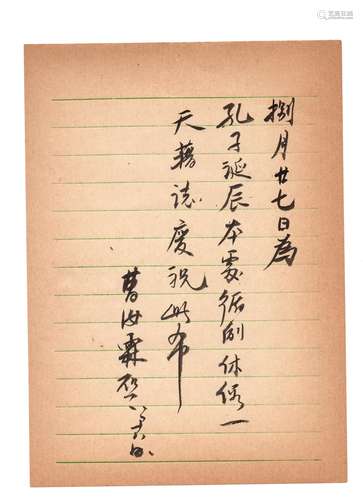 艺典在线
捌月廿七日為
孔子誕辰本處循例休假一
天藉誌慶祝此布
曹汝霖啟